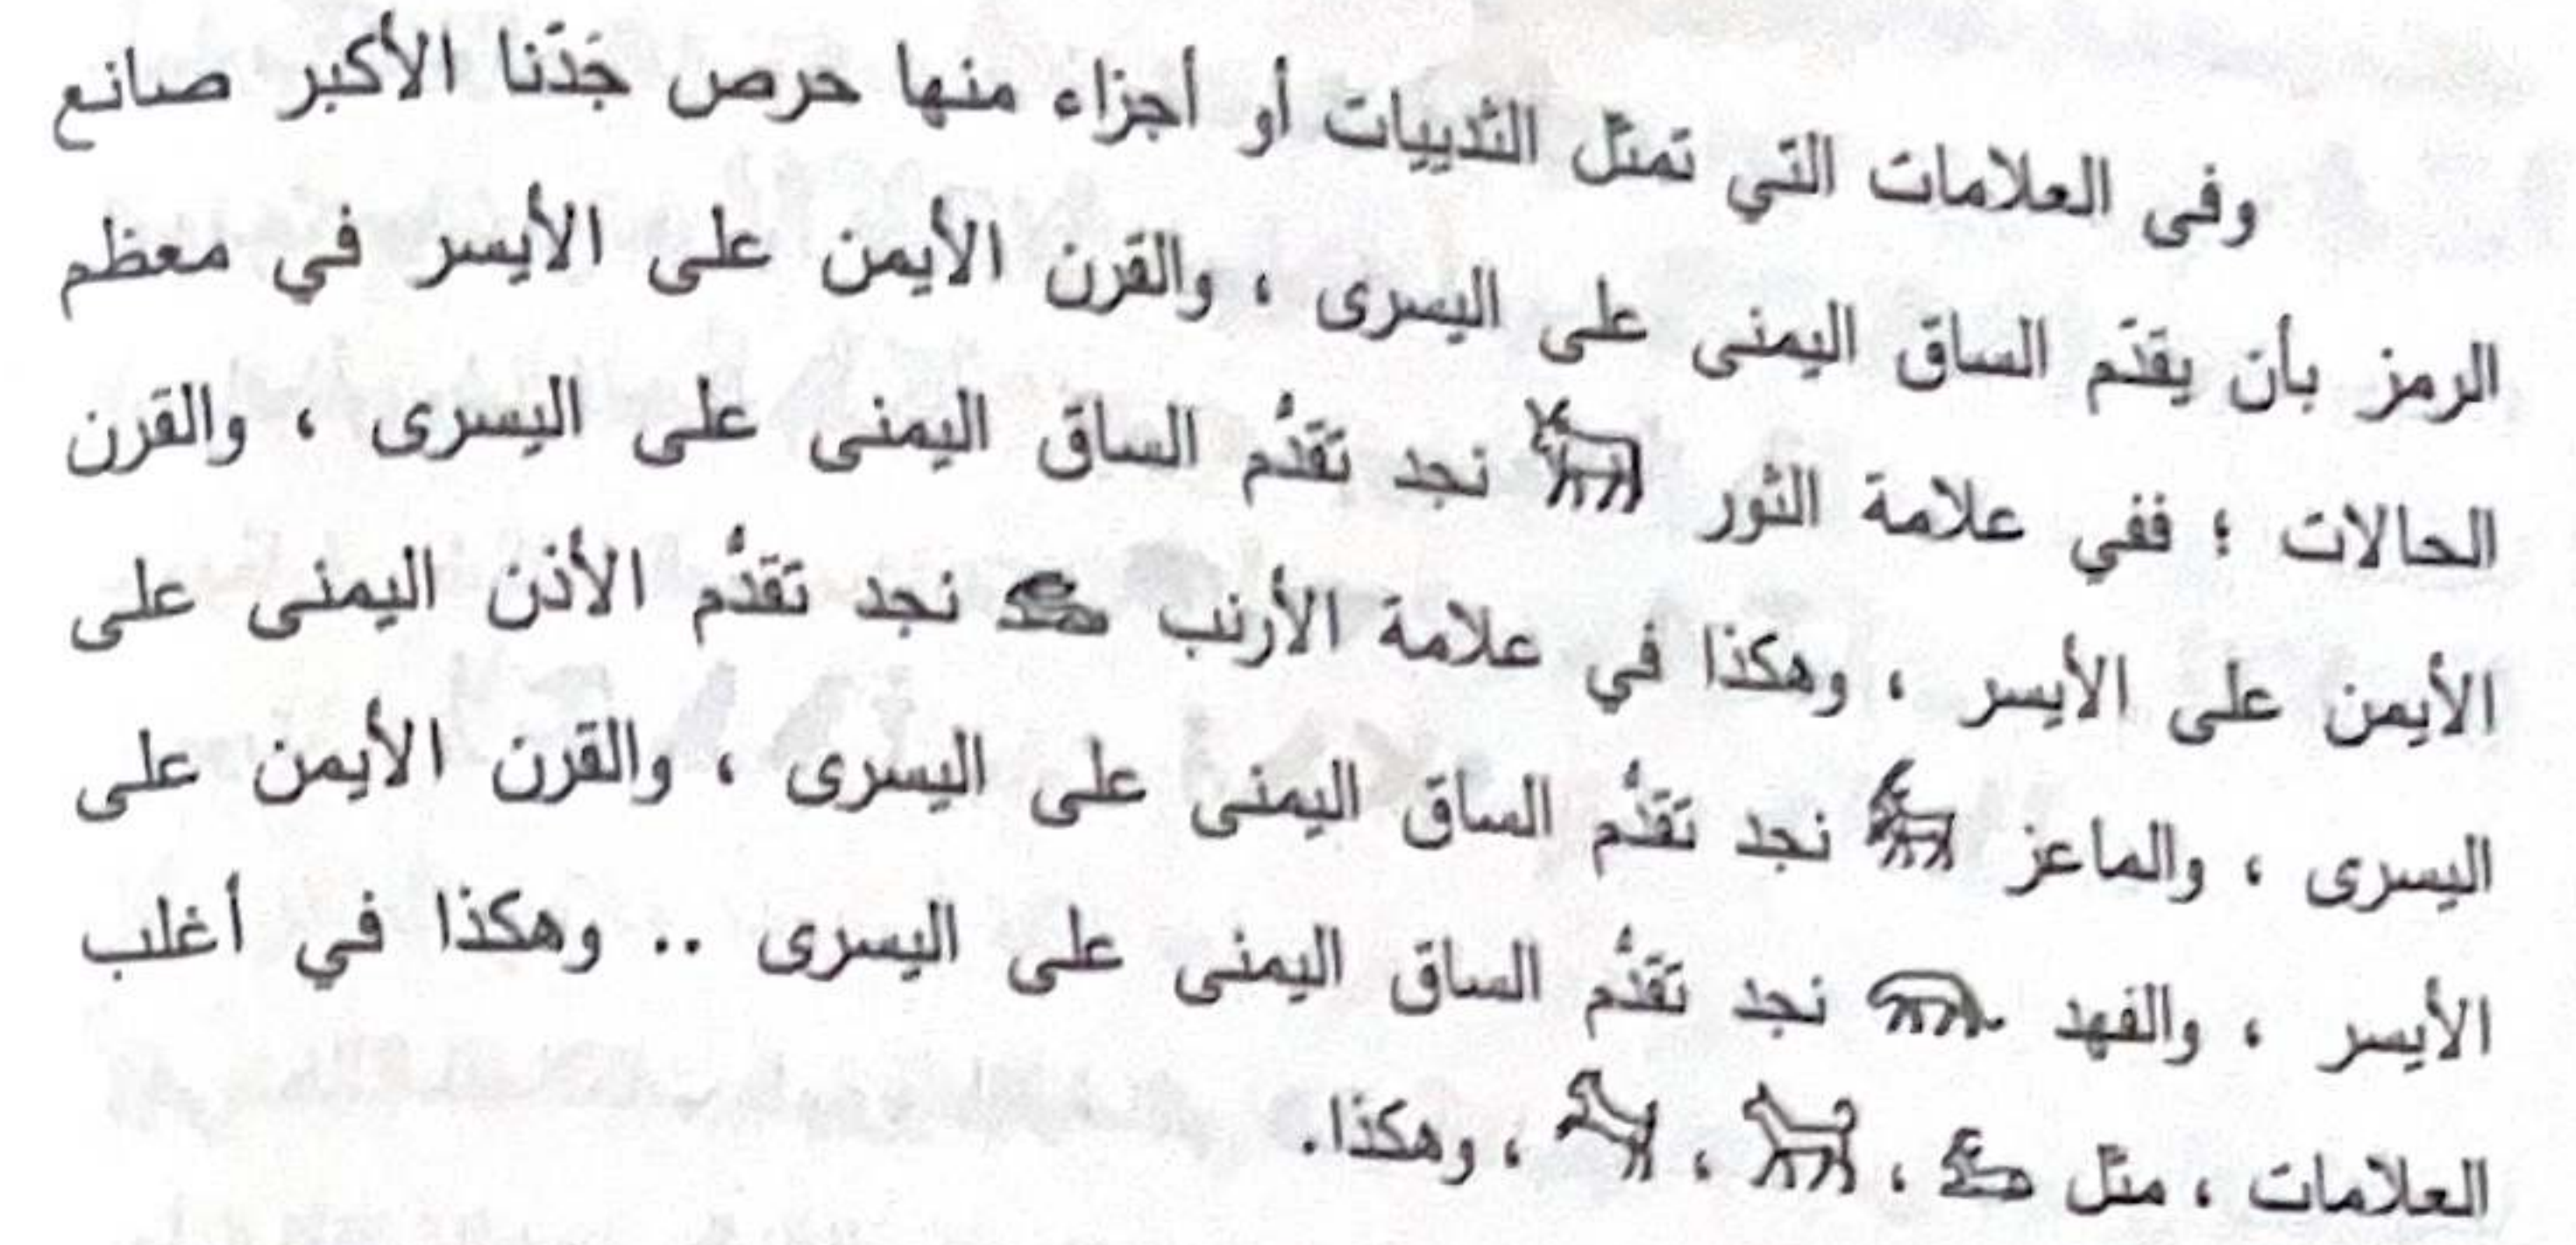 وفى العلامات التي تمثل الثدييات أو أجزاء منها حرص جَدّنا الأكبر صانع
الرمز بأن يقدّم الساق اليمنى على اليسرى ، والقرن الأيمن على الأيسر في معظم
الحالات ؛ ففي علامة الثور نجد تقدُّم الساق اليمنى على اليسرى ، والقرن
الأيمن على الأيسر ، وهكذا في علامة الأرنب نجد تقدُّم الأذن اليمنى على
اليسرى ، والماعز نجد تقدُّم الساق اليمنى على اليسرى ، والقرن الأيمن على
الأيسر ، والفهد نجد تقدُّم الساق اليمنى على اليسرى .. وهكذا في أغلب
العلامات ، مثل ، ، ، وهكذا.